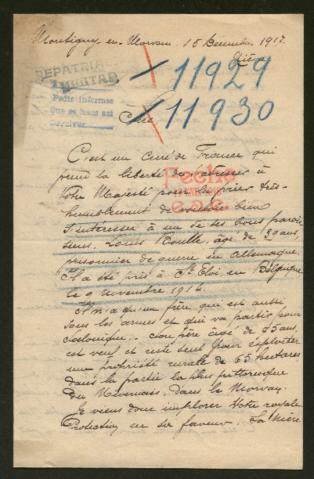 Montigny en Morvan, 15 Décembre 1917.
Nièvre
REPATRIA
MILITAR
Pedir informes
Que se haga así
11929
11930
Sire
C'est un Curé de France qui
prend la liberté de s'adresser à
Votre Majesté pour la prier très
humblement de vouloir bien
Fecha
s'intéresser à un de ses bons paroissiens,
Louis Roulle, âgé de 20 ans,
prisonnier de guerre en Allemagne.
Il a été pris à St Eloi en Belgique
le novembre 1914.
Il n'a qu'un frère qui est aussi
sous les armes et qui va partir pour
Salonique. Son père âgé de 55 ans,
est veuf et reste seul pour exploiter
une propriété rurale de 65 hectares
dans la partie la plus pittoresque
du Nivernais, dans le Morvan.
Je viens donc implorer Votre royale
Protection en sa faveur. La misère